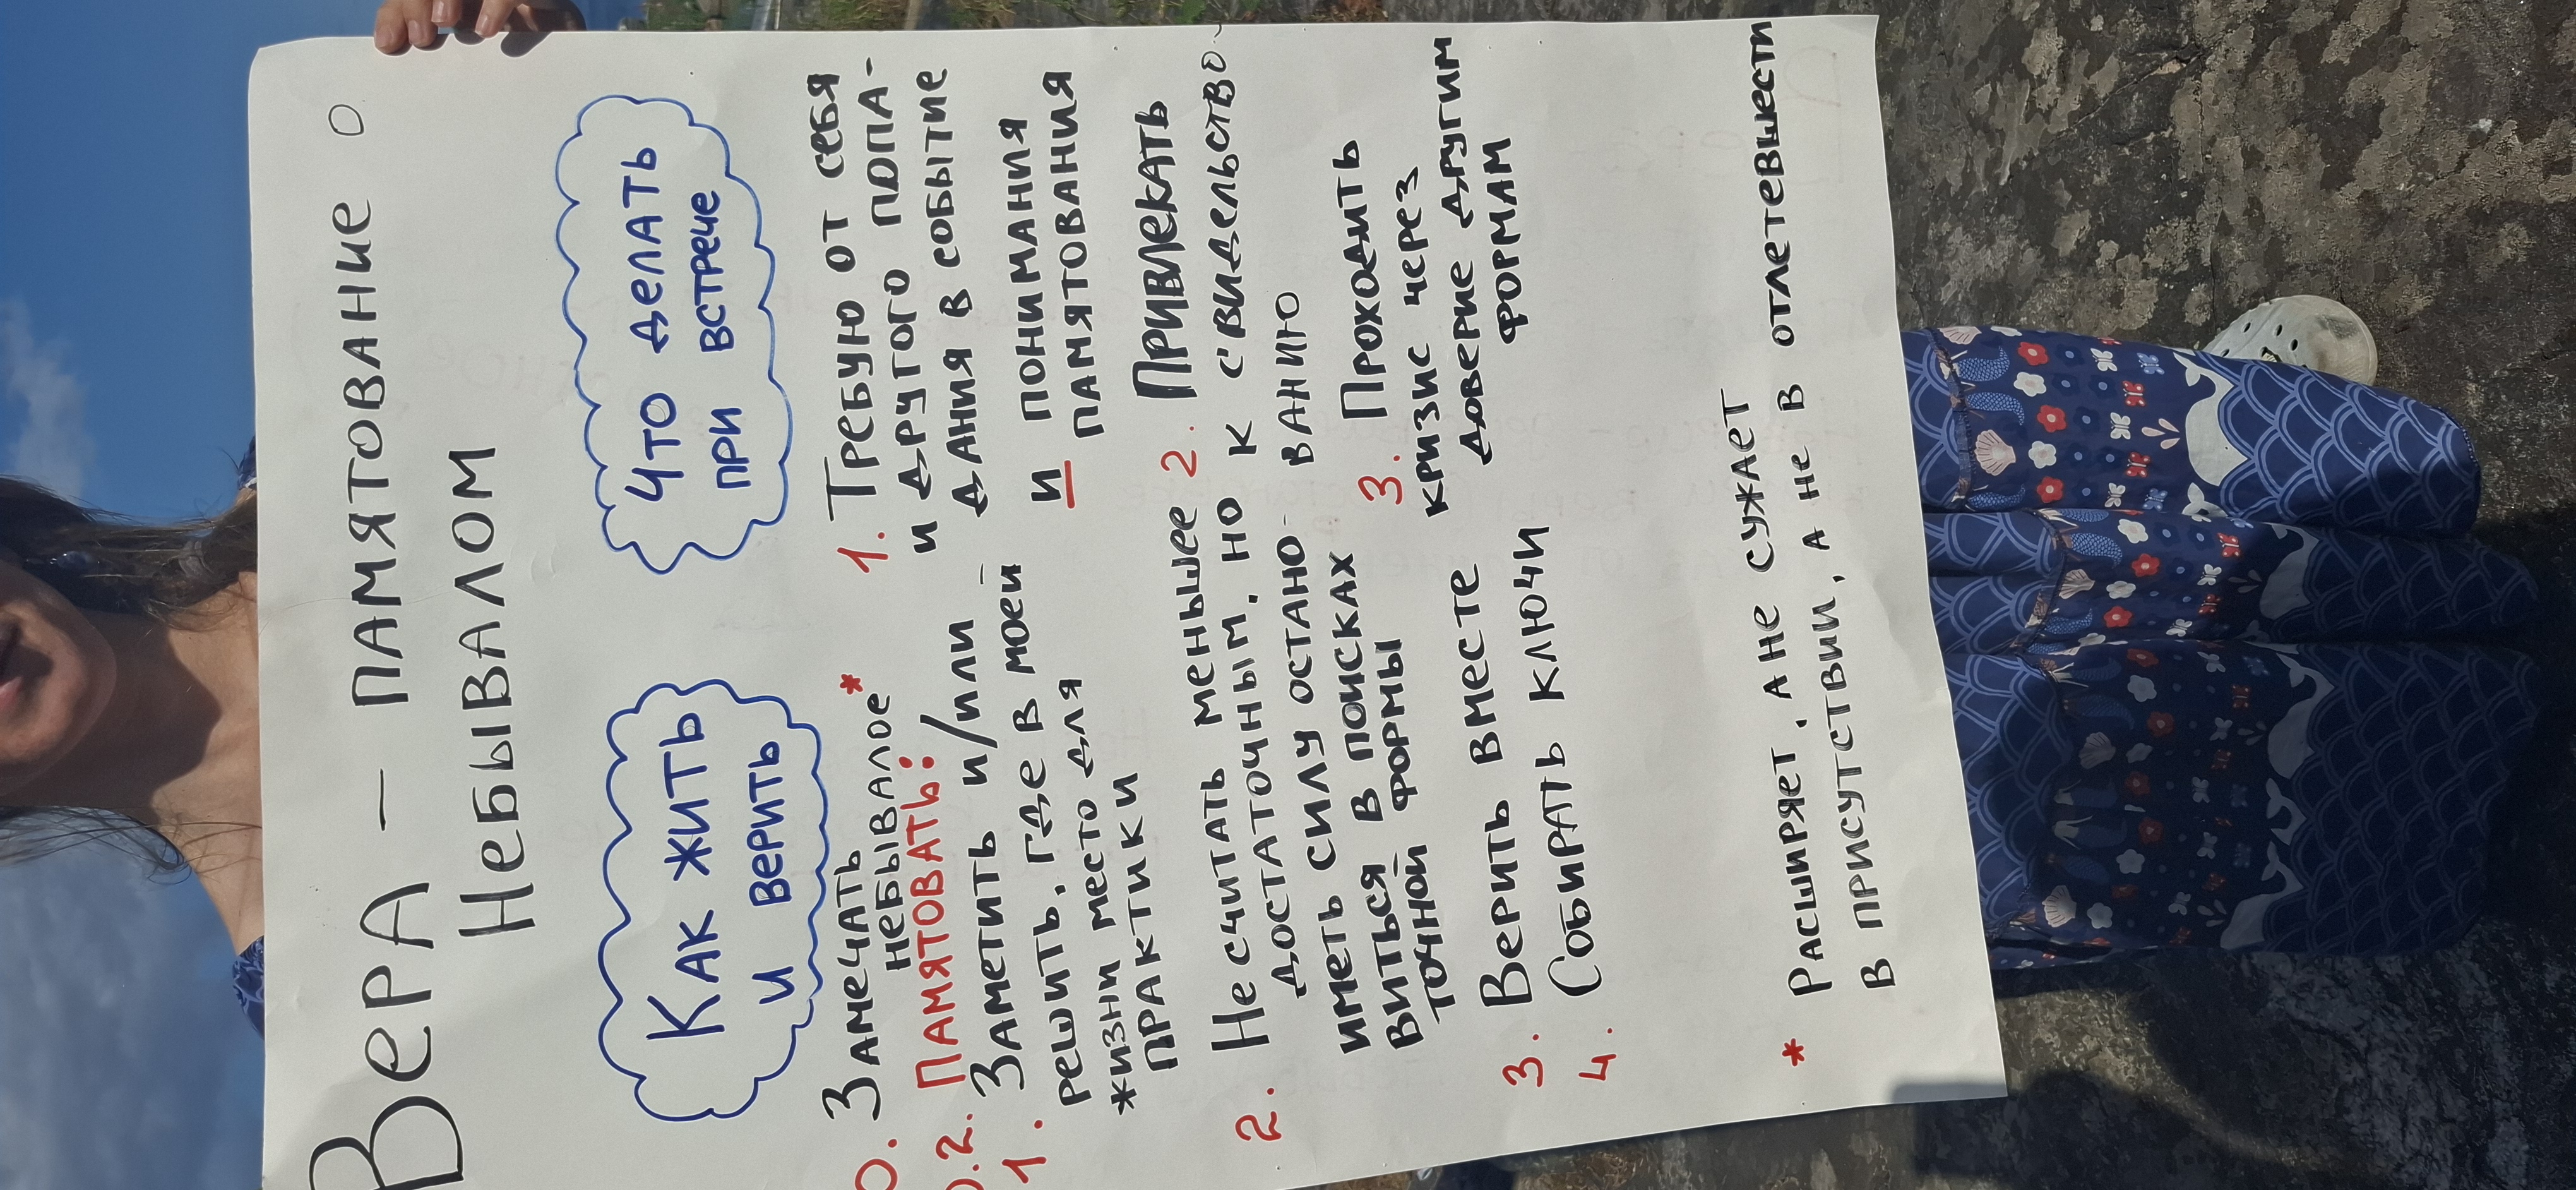 Вера — памятование о
Небывалом
Как жить
и верить
0. Замечать
небывалое*
0.2. Памятовать:
1. Заметить и/или
решить, где в моей
жизни место для
практики
2. Не считать меньшее
достаточным, но
иметь силу остано-
виться в поисках
точной формы
3. Верить вместе
4. Собирать ключи
Что делать
при встрече
1. Требую от себя
и другого попа-
дания в событие
и понимания
памятования
2. Привлекать
к свидельство-
ванию
3. Проходить
кризис через
доверие другим
формам
* Расширяет, а не сужает
В присутствии, а не в отлетевшести